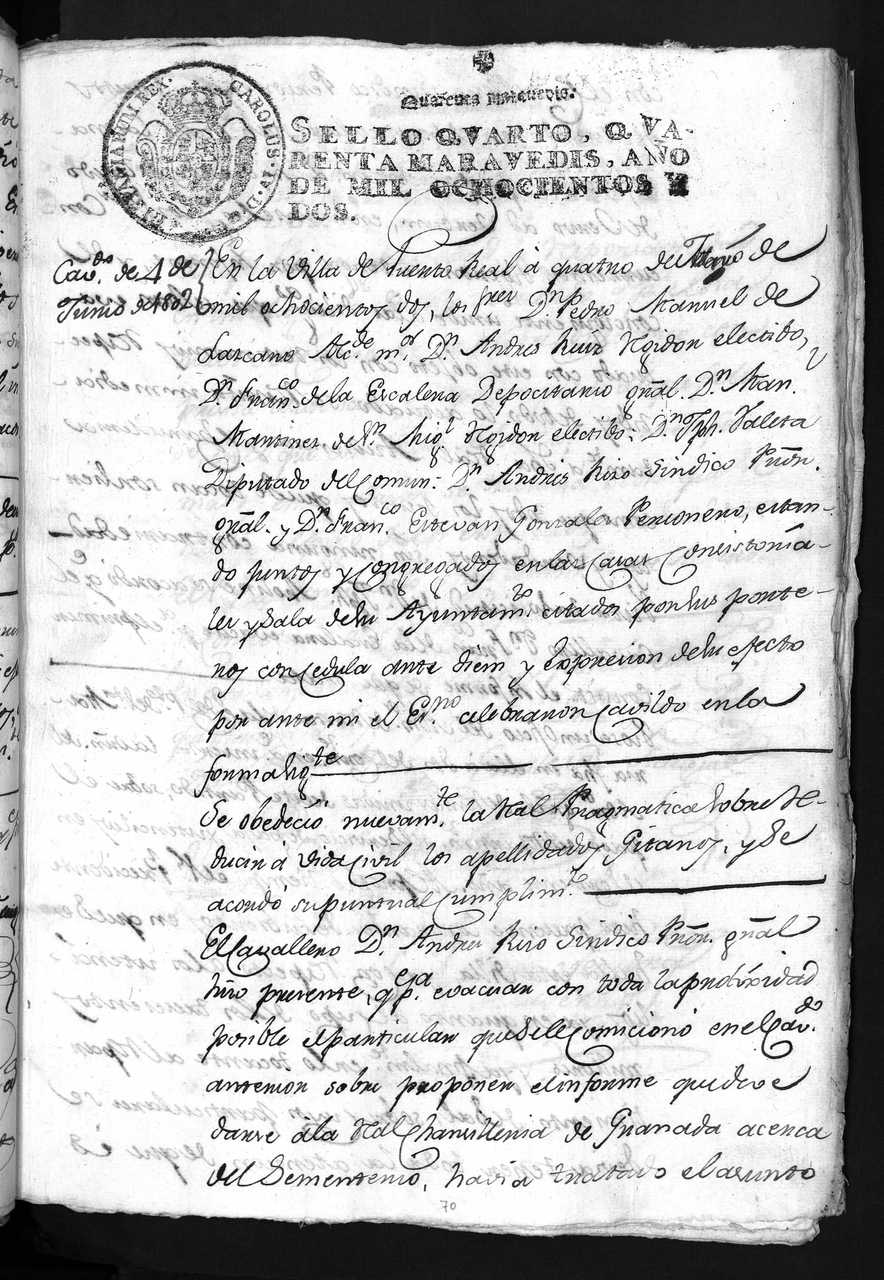 CAROLUS IV D. G. HISPANIARUM REX.
Quarenta maravedis.
SELLO QVARTO, QVA-
RENTA MARAVEDIS, AÑO
DE MIL OCHOCIENTOS Y
DOS.
Cavdo. de 4 de
Junio de 1802
En la Villa de Puerto Real à quatro de Junio de
mil ochocientos dos, los sres. Dn. Pedro Manuel de
Lazcano Alcde. mor. Dn. Andres Ruiz Rejidor electibo,
Dn. Franco. de la Escalera Depocitario gñal. Dn. Man.
Martinez de Sn. Migl. Rejidor electibo: Dn. Jph.
Diputado del Comun: Dn. Andres Rizo Sindico Prõr.
gñal. y Dn. Franco. Estevan Gonzales Personero, estan-
do juntos y congregados en las casas Consistoria-
les y Sala de su Ayuntamto. citados por sus porte-
ros con cedula ante diem y exprecion de su efecto
por ante mi el Esno. celebraron Cavildo en la
forma sigte
Se obedeció nuevamte. la Ral Pragmatica sobre re-
ducir á vida civil los apellidados Gitanos, y se
acordó su puntual cumplimto.
El Cavallero Dn. Andres Rizo Sindico Prõr. gñal
hizo presente, qe. pa. evacuar con toda la prolixidad
posible el particular que se le comicionó en el Cavdo.
anterior sobre proponer el informe que deve
darse á la Ral Chansilleria de Granada acerca
del Sementerio, havia tratado el asunto
70